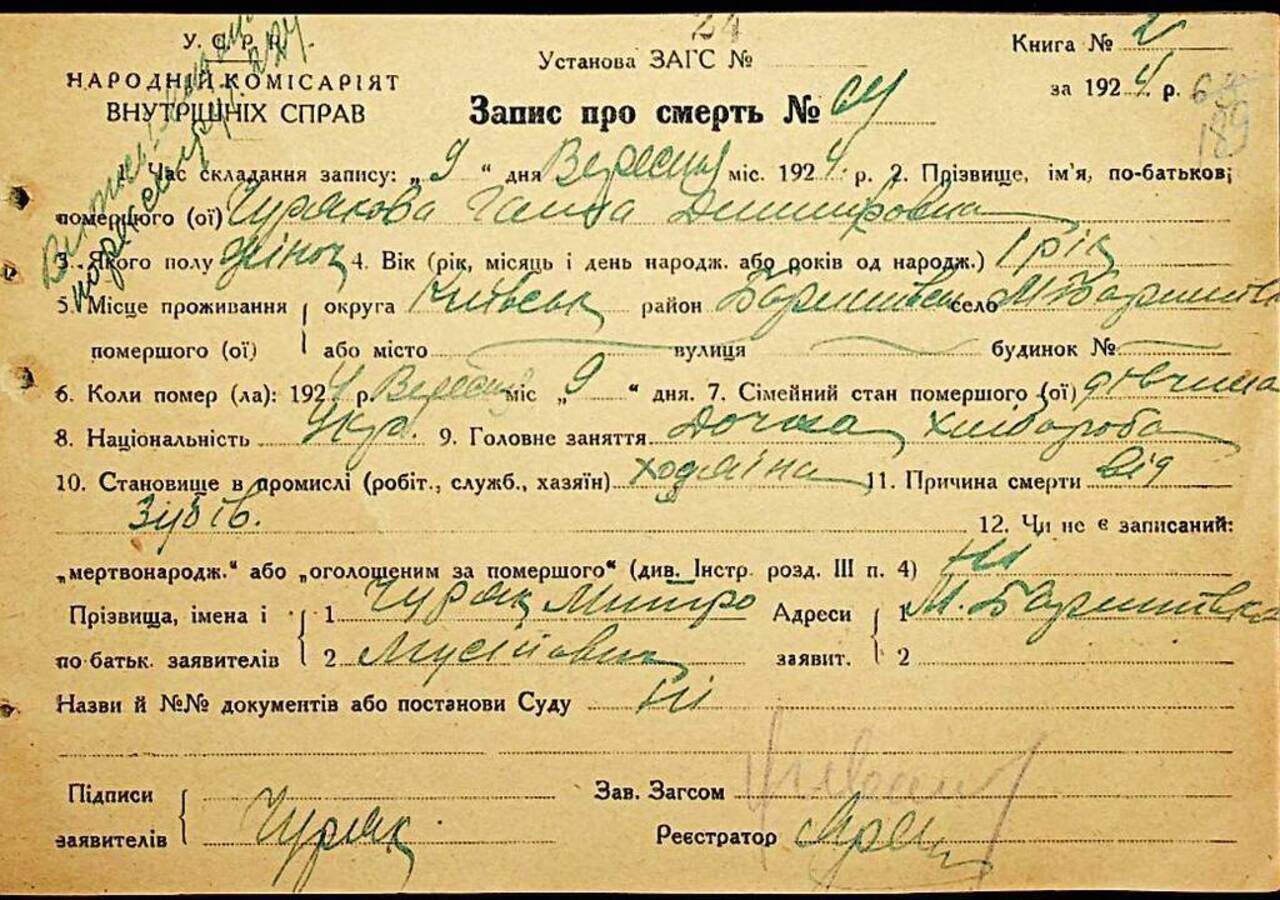 У.С.Р.Р.
НАРОДНІЙ КОМІСАРІЯТ
ВНУТРІШНІХ СПРАВ
24
Установа ЗАГС №
Книга № 2
за 1924 р.
189
Запис про смерть №
1. Час складання запису: „ 9 “ дня Вересня міс. 1924 р. 2. Прізвище, ім'я, по-батькові
помершого (ої) Чурякова Ганна Димитровна
3. Якого полу жіноч 4. Вік (рік, місяць і день народж. або років од народж.) 1 рік
5. Місце проживання округа Київськ район Баришівськ село М. Баришівка
помершого (ої) або місто вулиця будинок №
6. Коли помер (ла): 1924 р. Вересня міс „ 9 “ дня. 7. Сімейний стан помершого (ої) дівчина
8. Національність Укр. 9. Головне заняття Дочка хлібороба
10. Становище в промислі (робіт., служб., хазяїн) ходяїна 11. Причина смерти від
зубів. 12. Чи не є записаний:
„мертвонародж.“ або „оголошеним за помершого“ (див. Інстр. розд. III п. 4) Ні
Прізвища, імена і 1 Чуряк Митро Адреси 1 М. Баришівка
по батьк. заявителів 2 Мусійович заявит. 2
Назви й №№ документів або постанови Суду Ні
Підписи Зав. Загсом
заявителів Чуряк Реєстратор